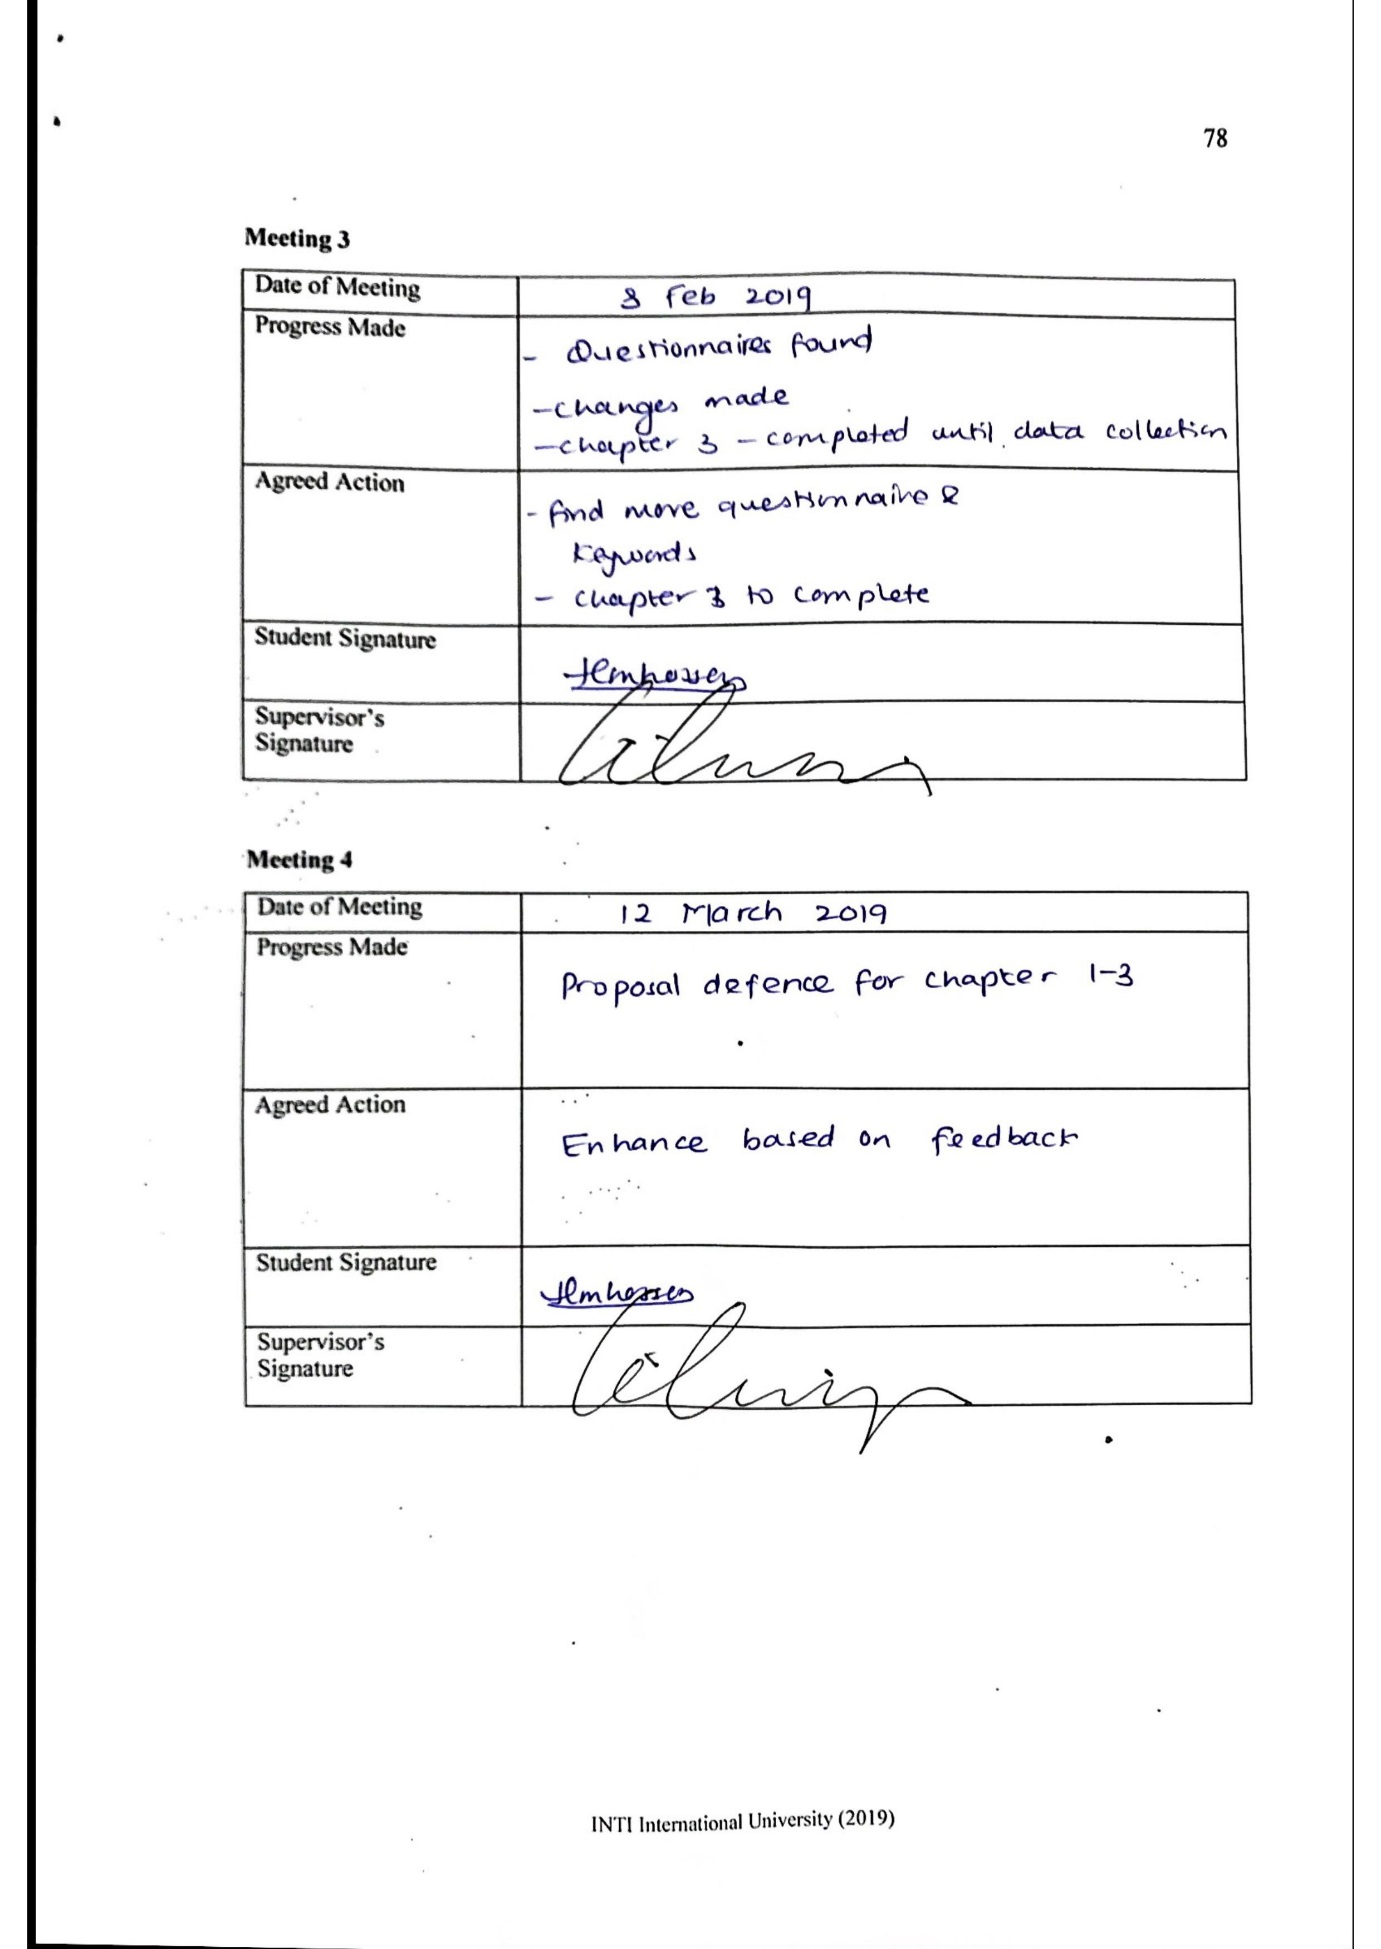 78
Meeting 3
Date of Meeting
8 Feb 2019
Progress Made
- Questionnaires found
- changes made
- chapter 3 - completed until data collection
Agreed Action
- find more questionnaire &
keywords
- chapter 3 to complete
Student Signature
Supervisor's
Signature
Meeting 4
Date of Meeting
12 March 2019
Progress Made
Proposal defence for chapter 1-3
Agreed Action
Enhance based on feedback
Student Signature
Supervisor's
Signature
INTI International University (2019)